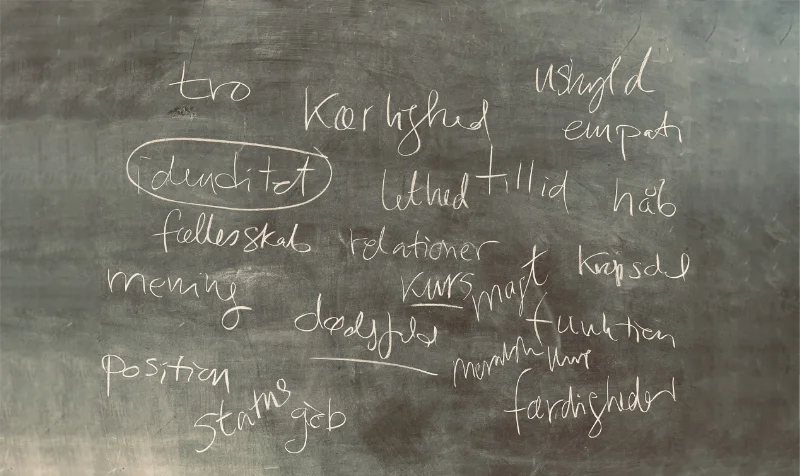 tro
uskyld
Kærlighed
empati
identitet
lethed tillid håb
fællesskab relationer kropsdel
mening kurs magt
dødsfald funktion
position
status job færdigheder